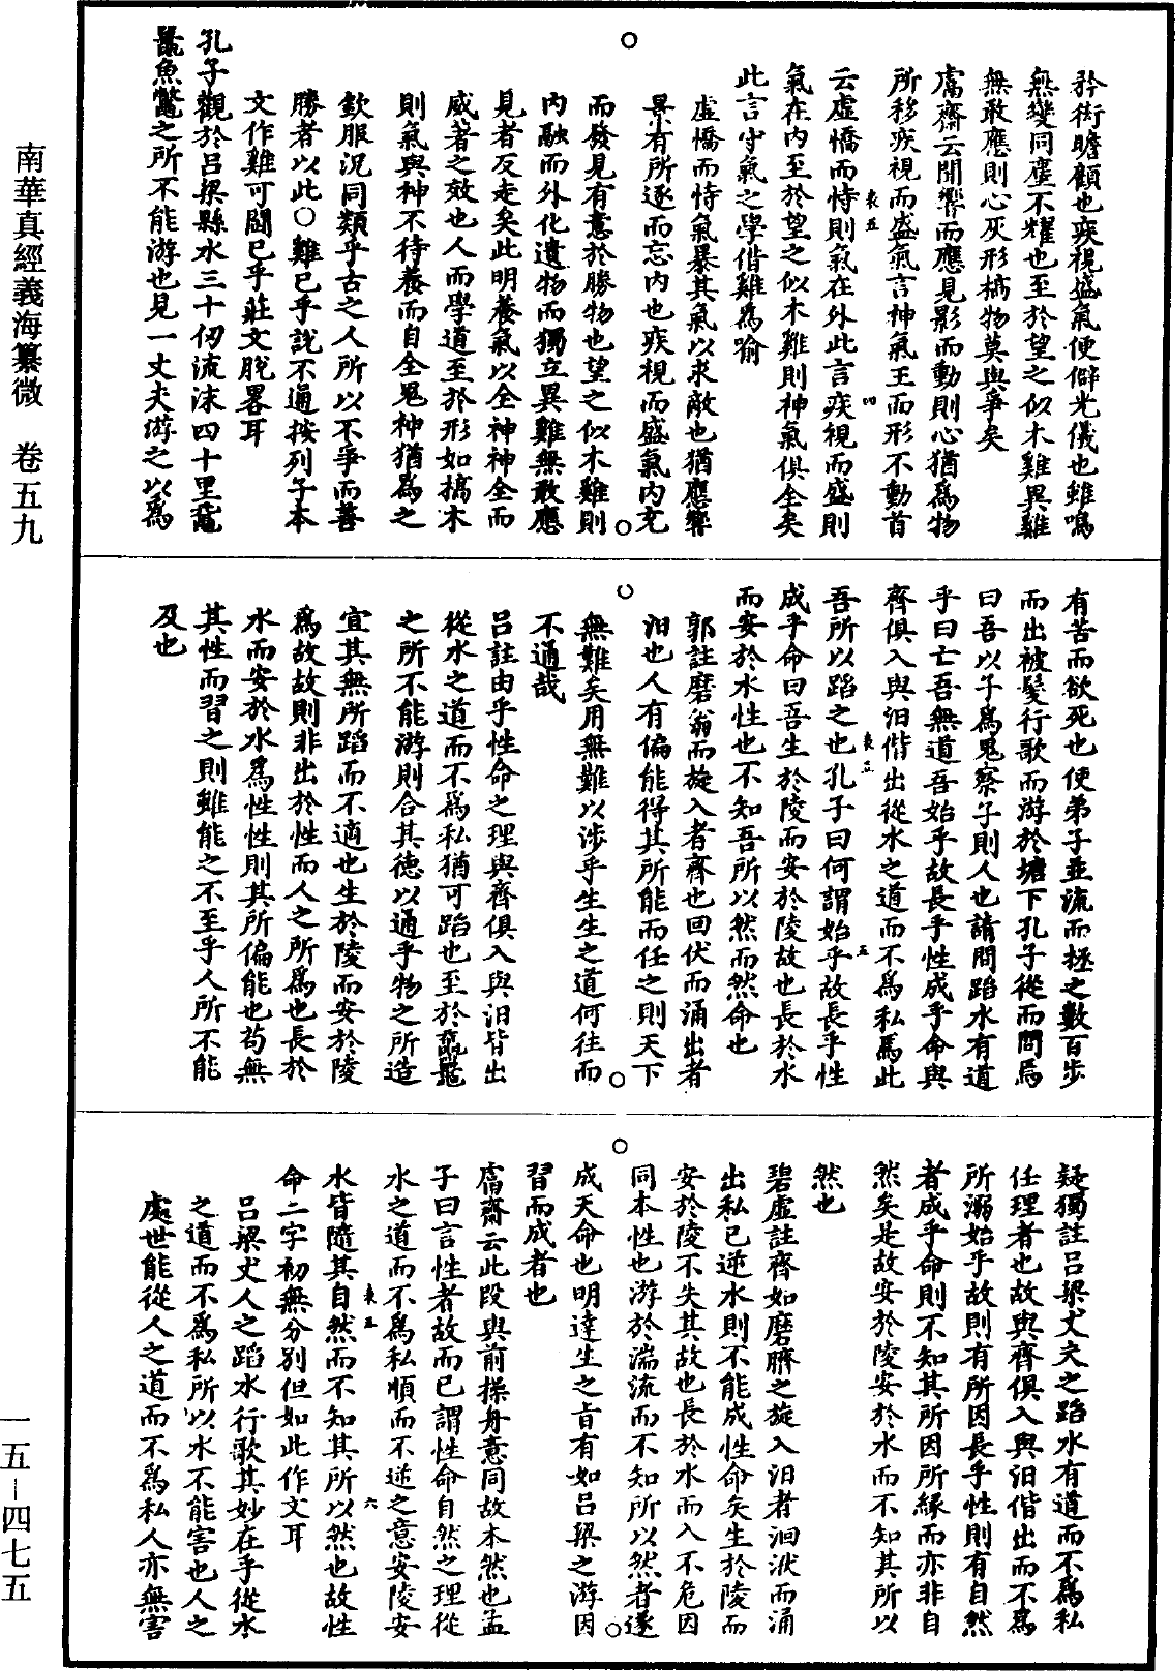 南華真經義海纂微　卷五九
一五－四七五
矜衒瞻顧也疾視盛氣使僻光儀也雖鳴
無變同塵不耀也至於望之似木雞異雞
無敢應則心灰形槁物莫與爭矣
鬳齋云聞響而應見影而動則心猶為物
所移疾視而盛氣言神氣王而形不動首
云虛憍而恃則氣在外此言疾視而盛則
氣在內至於望之似木雞則神氣俱全矣
此言守氣之學借雞為喻
虛憍而恃氣暴其氣以求敵也猶應響
景有所逐而忘內也疾視而盛氣內充
而發見有意於勝物也望之似木雞則
內融而外化遺物而獨立異雞無敢應
見者反走矣此明養氣以全神神全而
威著之效也人而學道至於形如槁木
則氣與神不待養而自全鬼神猶為之
欽服況同類乎古之人所以不爭而善
勝者以此○雞已乎說不通按列子本
文作雞可鬭已乎莊文脫畧耳
孔子觀於呂梁縣水三十仞流沫四十里黿
鼉魚鼈之所不能游也見一丈夫游之以為
有苦而欲死也使弟子並流而拯之數百步
而出被髮行歌而游於塘下孔子從而問焉
曰吾以子為鬼察子則人也請問蹈水有道
乎曰亡吾無道吾始乎故長乎性成乎命與
齊俱入與汩偕出從水之道而不為私焉此
吾所以蹈之也孔子曰何謂始乎故長乎性
成乎命曰吾生於陵而安於陵故也長於水
而安於水性也不知吾所以然而然命也
郭註磨翁而旋入者齊也回伏而涌出者
汩也人有偏能得其所能而任之則天下
無難矣用無難以涉乎生生之道何往而
不通哉
呂註由乎性命之理與齊俱入與汩皆出
從水之道而不為私猶可蹈也至於黿鼉
之所不能游則合其德以通乎物之所造
宜其無所蹈而不適也生於陵而安於陵
為故故則非出於性而人之所為也長於
水而安於水為性性則其所偏能也苟無
其性而習之則雖能之不至乎人所不能
及也
疑獨註呂梁丈夫之蹈水有道而不為私
任理者也故與齊俱入與汩偕出而不為
所溺始乎故則有所因長乎性則有自然
者成乎命則不知其所因所緣而亦非自
然矣是故安於陵安於水而不知其所以
然也
碧虛註齊如磨臍之旋入汩者洄洑而涌
出私己逆水則不能成性命矣生於陵而
安於陵不失其故也長於水而入不危因
同本性也游於湍流而不知所以然者遂
成天命也明達生之旨有如呂梁之游因
習而成者也
鬳齋云此段與前操舟意同故本然也孟
子曰言性者故而已謂性命自然之理從
水之道而不為私順而不逆之意安陵安
水皆隨其自然而不知其所以然也故性
命二字初無分別但如此作文耳
呂梁丈人之蹈水行歌其妙在乎從水
之道而不為私所以水不能害也人之
處世能從人之道而不為私人亦無害